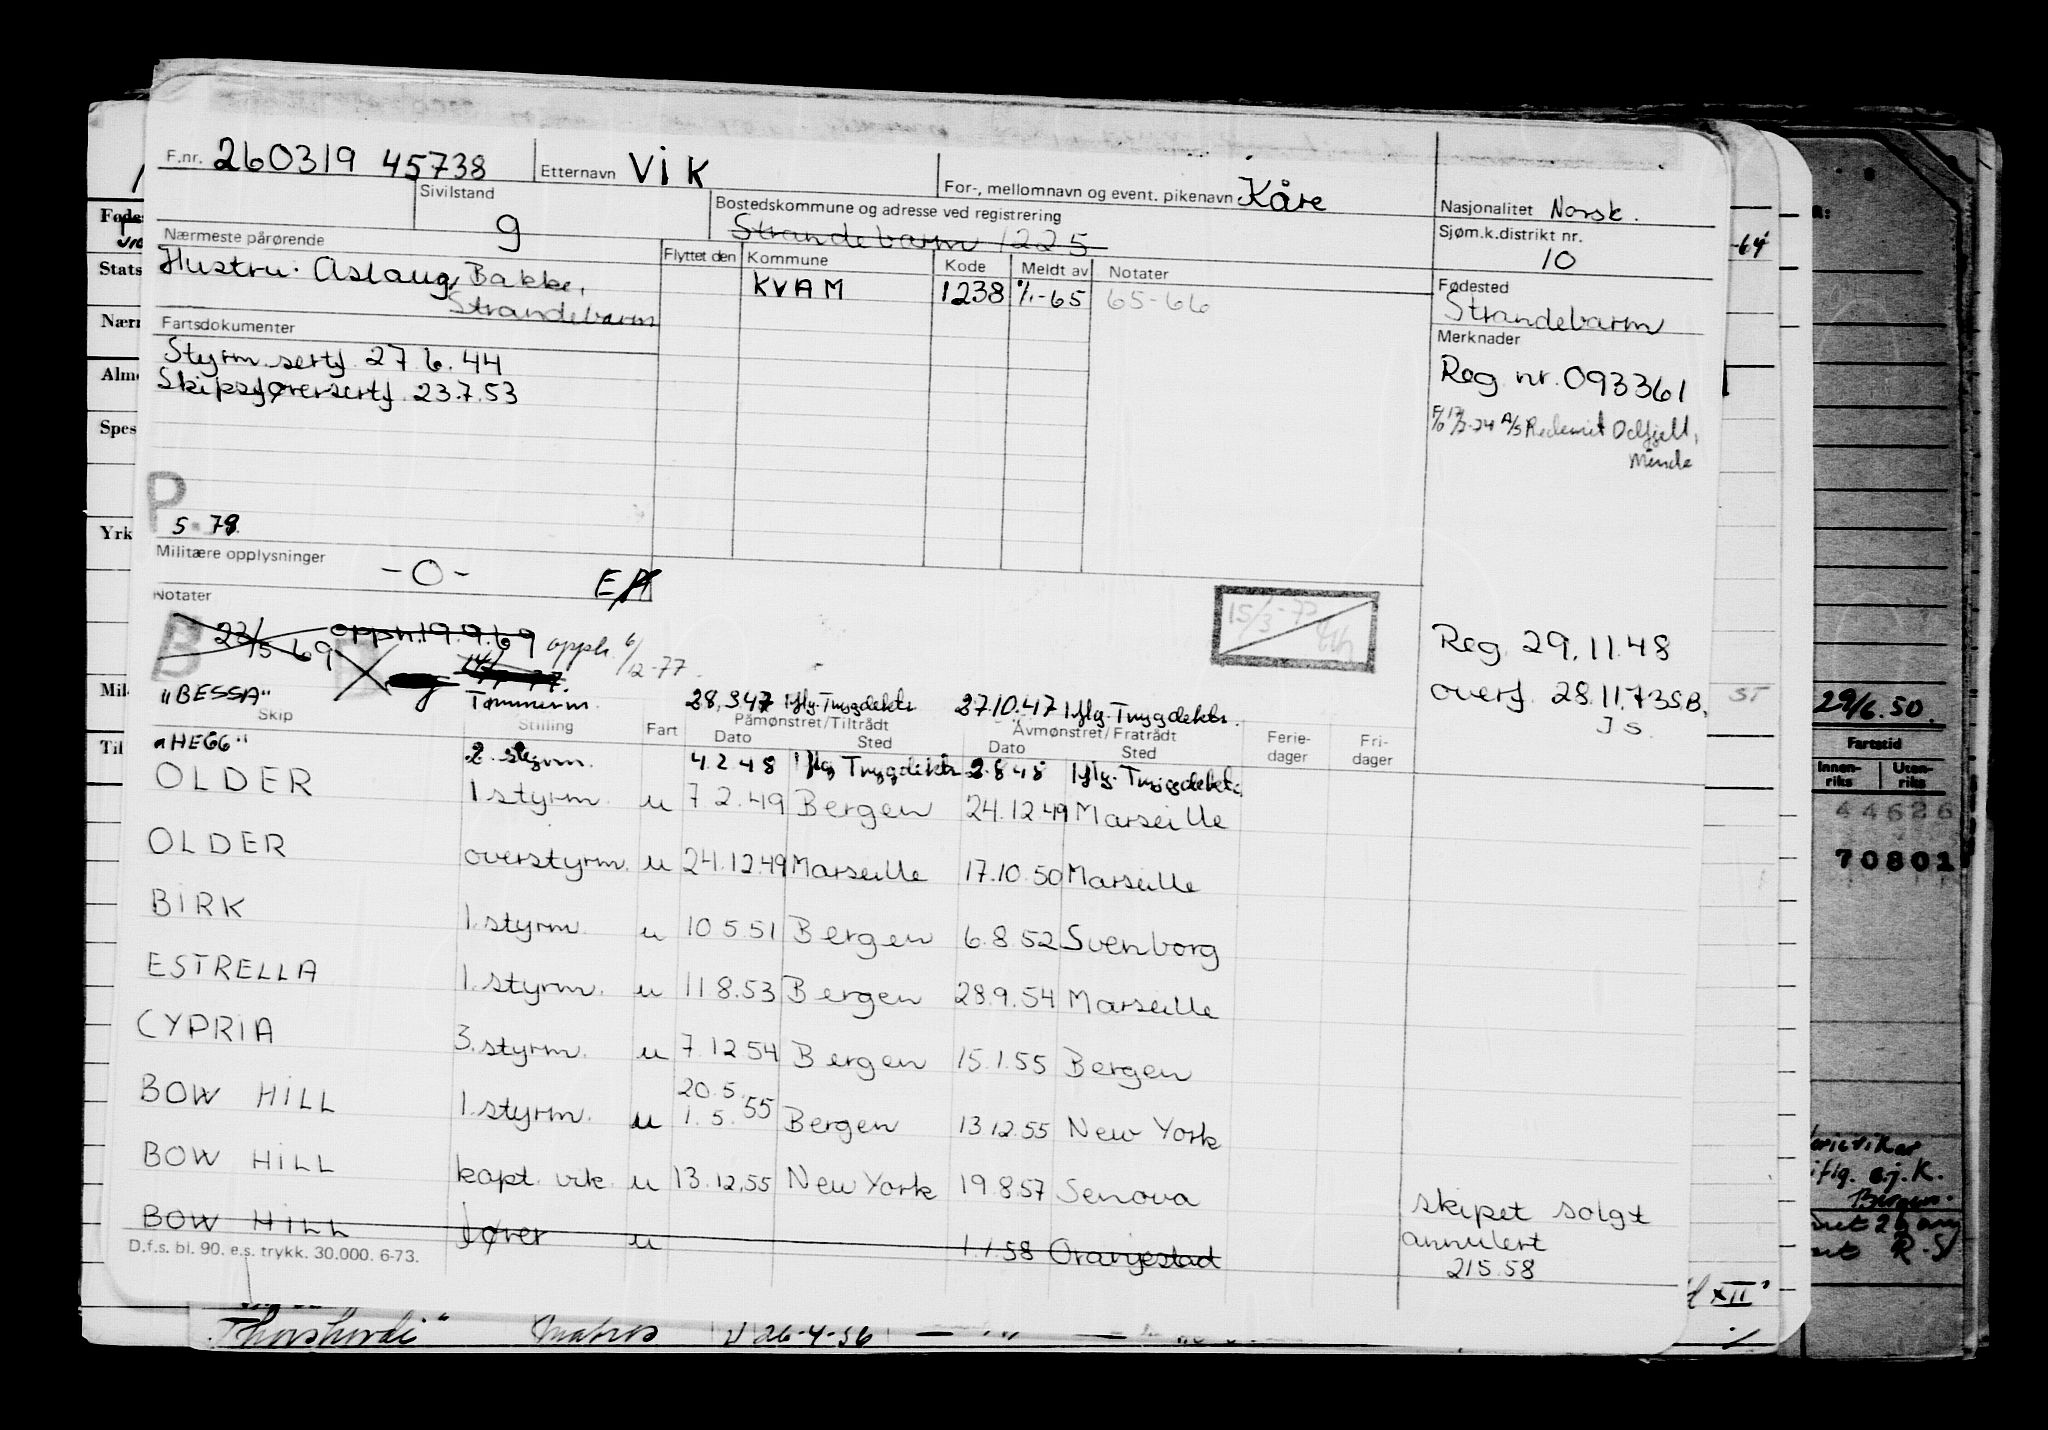 F.nr. 260319 45738 Etternavn Vik For-, mellomnavn og event. pikenavn Kåre Nasjonalitet Norsk.
Sivilstand g Bostedskommune og adresse ved registrering Strandebarm 1225 Sjøm.k.distrikt nr. 10
Nærmeste pårørende
Hustru: Aslaug Bakke,
Strandebarm
Flyttet den Kommune Kode Meldt av Notater
KVAM 1238 1/1-65 65-66
Fødested
Strandebarm
Fartsdokumenter
Styrm.sertf. 27.6.44
Skipsførersertf. 23.7.53
Merknader
Reg nr. 093361
A/S Rederiet Odfjell,
Minde
P
5-78
Militære opplysninger
-0-
Notater
B 23/5 69 opph. 19.9.69 opph. 6/12-77.
15/3-77
Reg. 29.11.48
overf. 28.11.73 S.B.
J S.
"BESSA" Tømmerm. 28.3.47 Iflg. Trygdektr 27.10.47 Iflg. Trygdektr.
Skip Stilling Fart Påmønstret/Tiltrådt Avmønstret/Fratrådt Ferie-dager Fri-dager
Dato Sted Dato Sted
"HEGG" 2. styrm. 4.2.48 Iflg Trygdektr 2.8.48 Iflg. Trygdektr.
OLDER 1 styrm. u 7 2.49 Bergen 24.12.49 Marseille
OLDER overstyrm. u 24.12.49 Marseille 17.10.50 Marseille
BIRK 1. styrm. u 10 5.51 Bergen 6.8.52 Svenborg
ESTRELLA 1. styrm. u 11 8.53 Bergen 28.9.54 Marseille
CYPRIA 3. styrm. u 7.12 54 Bergen 15.1.55 Bergen
20.5.
BOW HILL 1. styrm. u 1.5.55 Bergen 13.12.55 New York
BOW HILL kapt. vik. u 13.12.55 New York 19.8.57 Senova skipet solgt
BOW HILL fører u 1.1.58 Oranjestad annulert
21 5.58
D.f.s. bl. 90. e.s. trykk. 30.000. 6-73.
Føds
Stats
Nær
Alm
Spes
Yrk
Mil
Til
-64
ST
29/6.50.
Fartstid
Innen-riks Uten-riks
44626
70801
iflg. e.j. K.
Bergen.
R.S
XII
Thorshovdi" Matros U 26-4-56